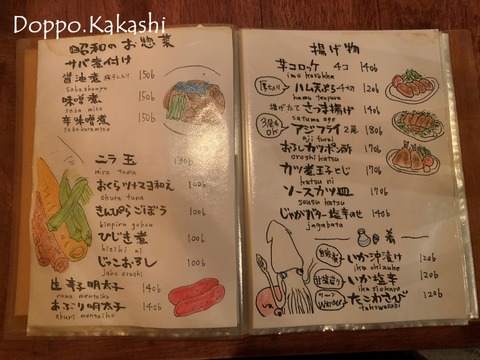 Doppo.Kakashi
昭和のお惣菜
サバ煮付け
醤油煮 梅干し入り 150b
saba shouyu
味噌煮 150b
saba miso
辛味噌煮 150b
saba karamiso
ニラ玉 130b
nira tama
おくらツナマヨ和え 120b
okura tuna
きんぴらごぼう 100b
kinpira gobou
ひじき煮 100b
hijiki ni
じゃこおろし 100b
jako oroshi
生辛子明太子 140b
nama mentaiko
あぶり明太子 140b
aburi mentaiko
揚げ物
芋コロッケ 4コ 140b
imo korokke
厚切り
ハム天ぷら 4切 120b
hamu tenpura
揚げたて さつま揚げ 140b
satuma age
3尾も OK
アジフライ 2尾 180b
aji furai
おろしカツポン酢 170b
oroshi katsu
カツ煮玉子とじ 170b
katsu ni
ソースカツ皿 170b
sousu katsu
じゃがバター塩辛のせ 140b
jagabata
肴
いか沖漬け 120b
ika okizuke
いか塩辛 120b
ika siokara
たこわさび 120b
takowasabi